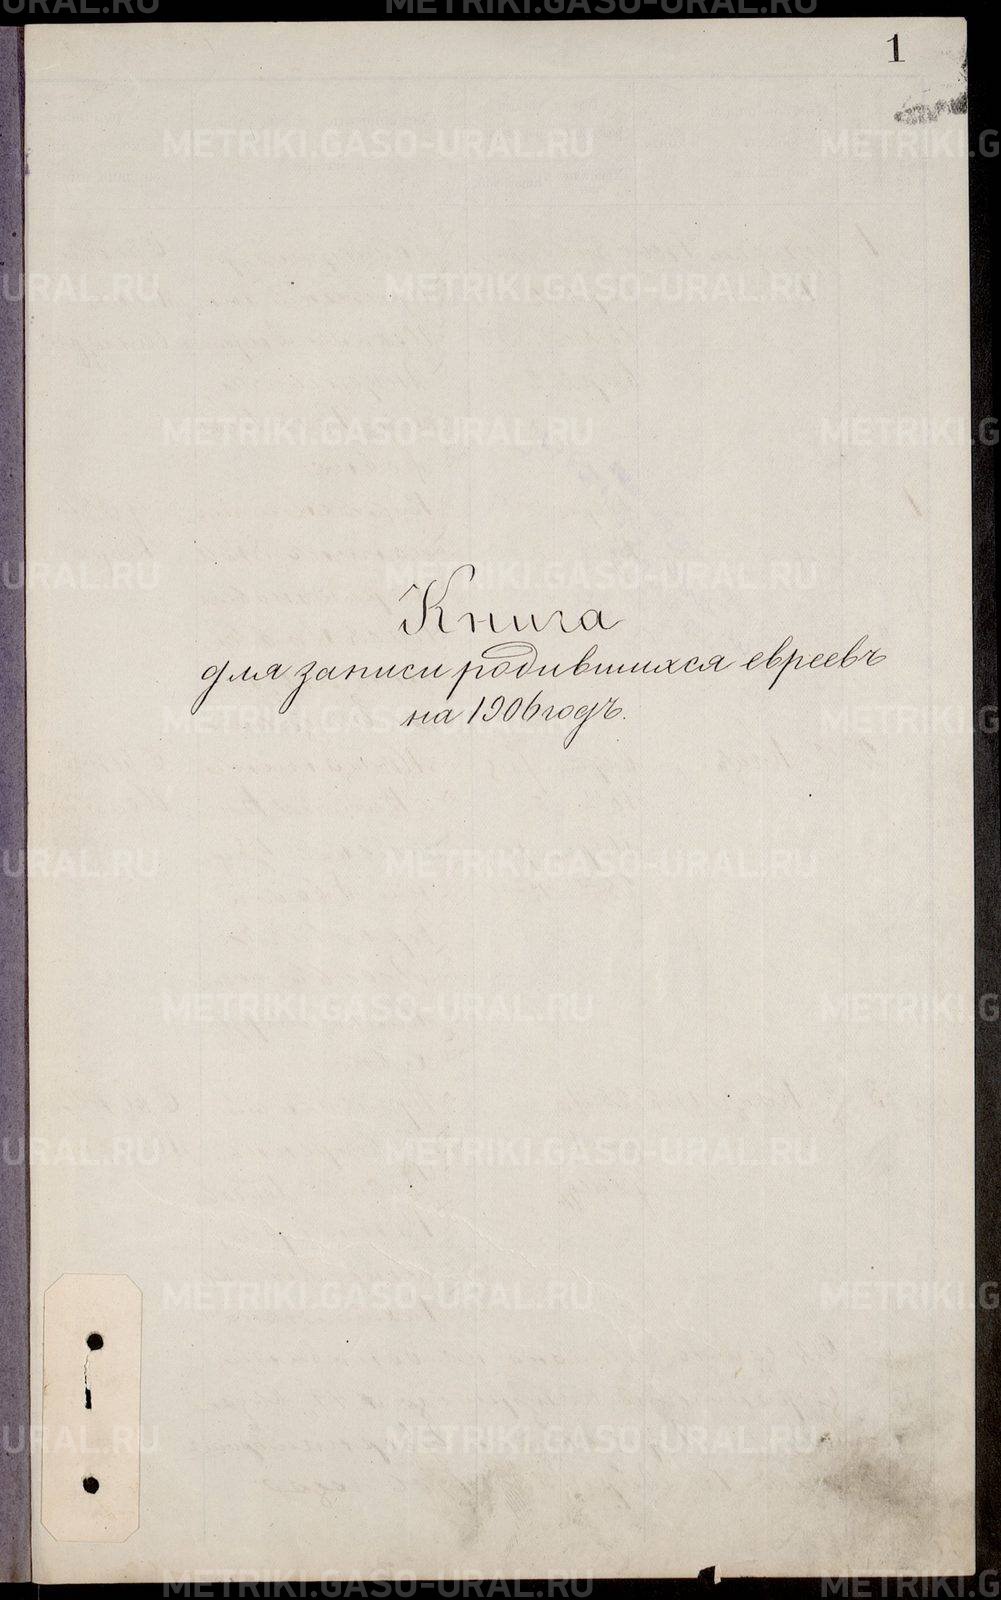 1
Книга
для записи родившихся евреевъ
на 1906 годъ.
METRIKI.GASO-URAL.RU